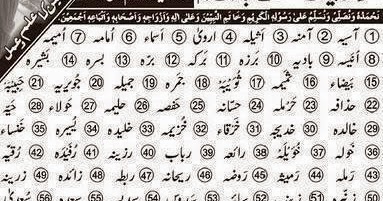 نَحْمَدُهٗ وَنُصَلِّیْ وَنُسَلِّمُ عَلٰی رَسُوْلِهِ الْكَرِیْمِ وَخَاتَمِ النَّبِیّٖنَ وَعَلٰی اٰلِهٖ وَاَزْوَاجِهٖ وَاَصْحَابِهٖ وَاَتْبَاعِهٖ اَجْمَعِیْنَ
① آسیہ ② آمنہ ③ اثیلہ ④ ارویٰ ⑤ اسماء ⑥ اُمامہ ⑦ اُمیمہ
⑧ اُنیسہ ⑨ بادیہ ⑩ برزہ ⑪ برکہ ⑫ بَرّہ ⑬ بسرہ ⑭ بُشیرہ
⑮ بیضاء ⑯ ثبیتہ ⑰ ثُوَیْبَہ ⑱ جمرہ ⑲ جمیلہ ⑳ جویریہ ㉑ حبیبہ
㉒ حذافہ ㉓ حرملہ ㉔ حسّانہ ㉕ حفصہ ㉖ حلیمہ ㉗ حولاء ㉘
㉙ خالدہ ㉚ خدیجہ ㉛ خرقاء ㉜ خُزیمہ ㉝ خلیدہ ㉞ ㉟ خنساء
㊱ خولہ ㊲ خُوَیْلَہ ㊳ رائعہ ㊴ رباب ㊵ رزینہ ㊶ رُفَیْدَہ ㊷ رُقیّہ
㊸ رملہ ㊹ رمیثہ ㊺ روضہ ㊻ ریحانہ ㊼ ریطہ ㊽ زائدہ ㊾ زرینہ
㊿ زنیرہ 51 زینب 52 سائبہ 53 سبیعہ 54 سدرہ 55